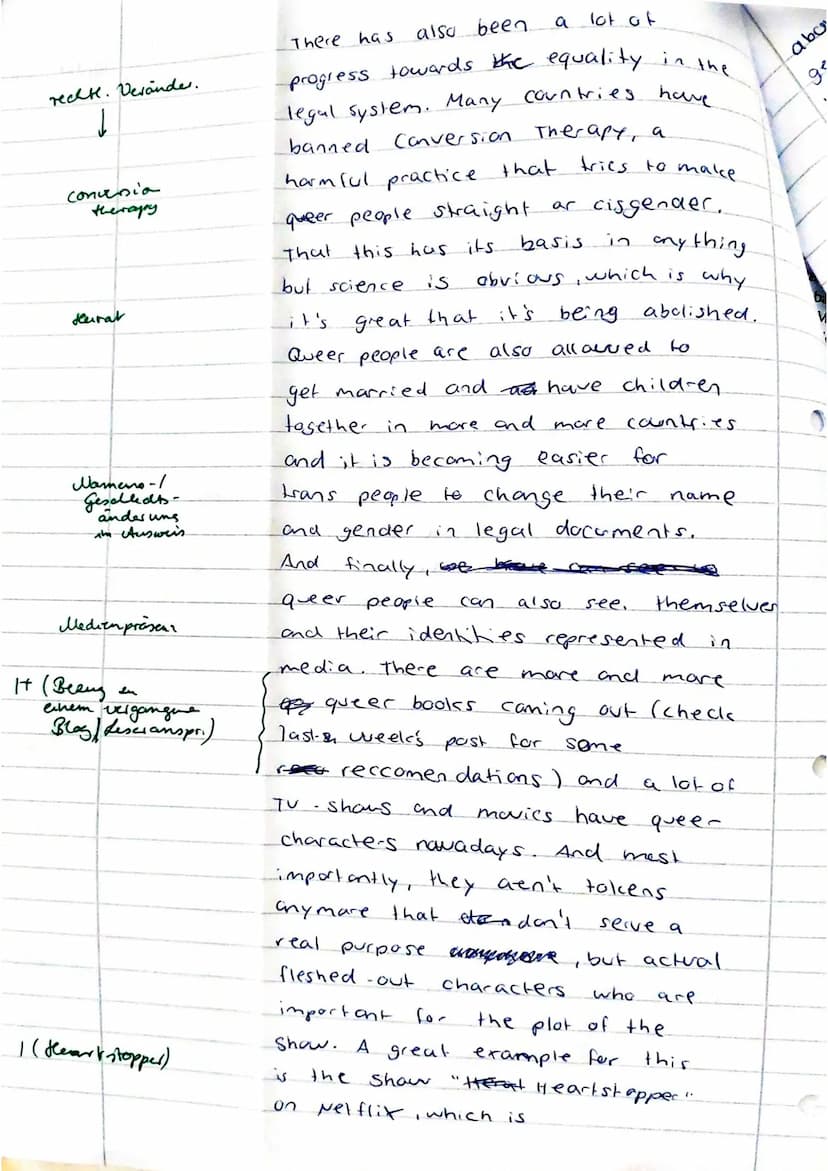 There has also been a lot of
progress towards the equality in the
legal system. Many countries have
banned Conversion Therapy, a
harmful practice that tries to make
queer people straight or cisgender.
That this has its basis in anything
but science is obvious, which is why
it's great that it's being abolished.
Queer people are also allowed to
get married and have children
together in more and more countries
and it is becoming easier for
trans people to change their name
and gender in legal documents.
And finally, we have can see us
queer people can also see. themselves
and their identities represented in
media. There are more and more
queer books coming out (check
last week's post for some
reccomendations) and a lot of
TV-shows and movies have queer
characters nowadays. And most
importantly, they aren't tokens
anymore that don't serve a
real purpose, but actual
fleshed-out characters who are
important for the plot of the
show. A great example for this
is the show "Heartstopper"
on Netflix, which is
rechtl. Veränder.
↓
Conversion
therapy
Heirat
Namens-/
Geschlechts-
änderung
im Ausweis
Medienpräsenz
I+ (Bezug zu
einem vergangene
Blog/Leseranspr.)
I (Heartstopper)
abo
ge